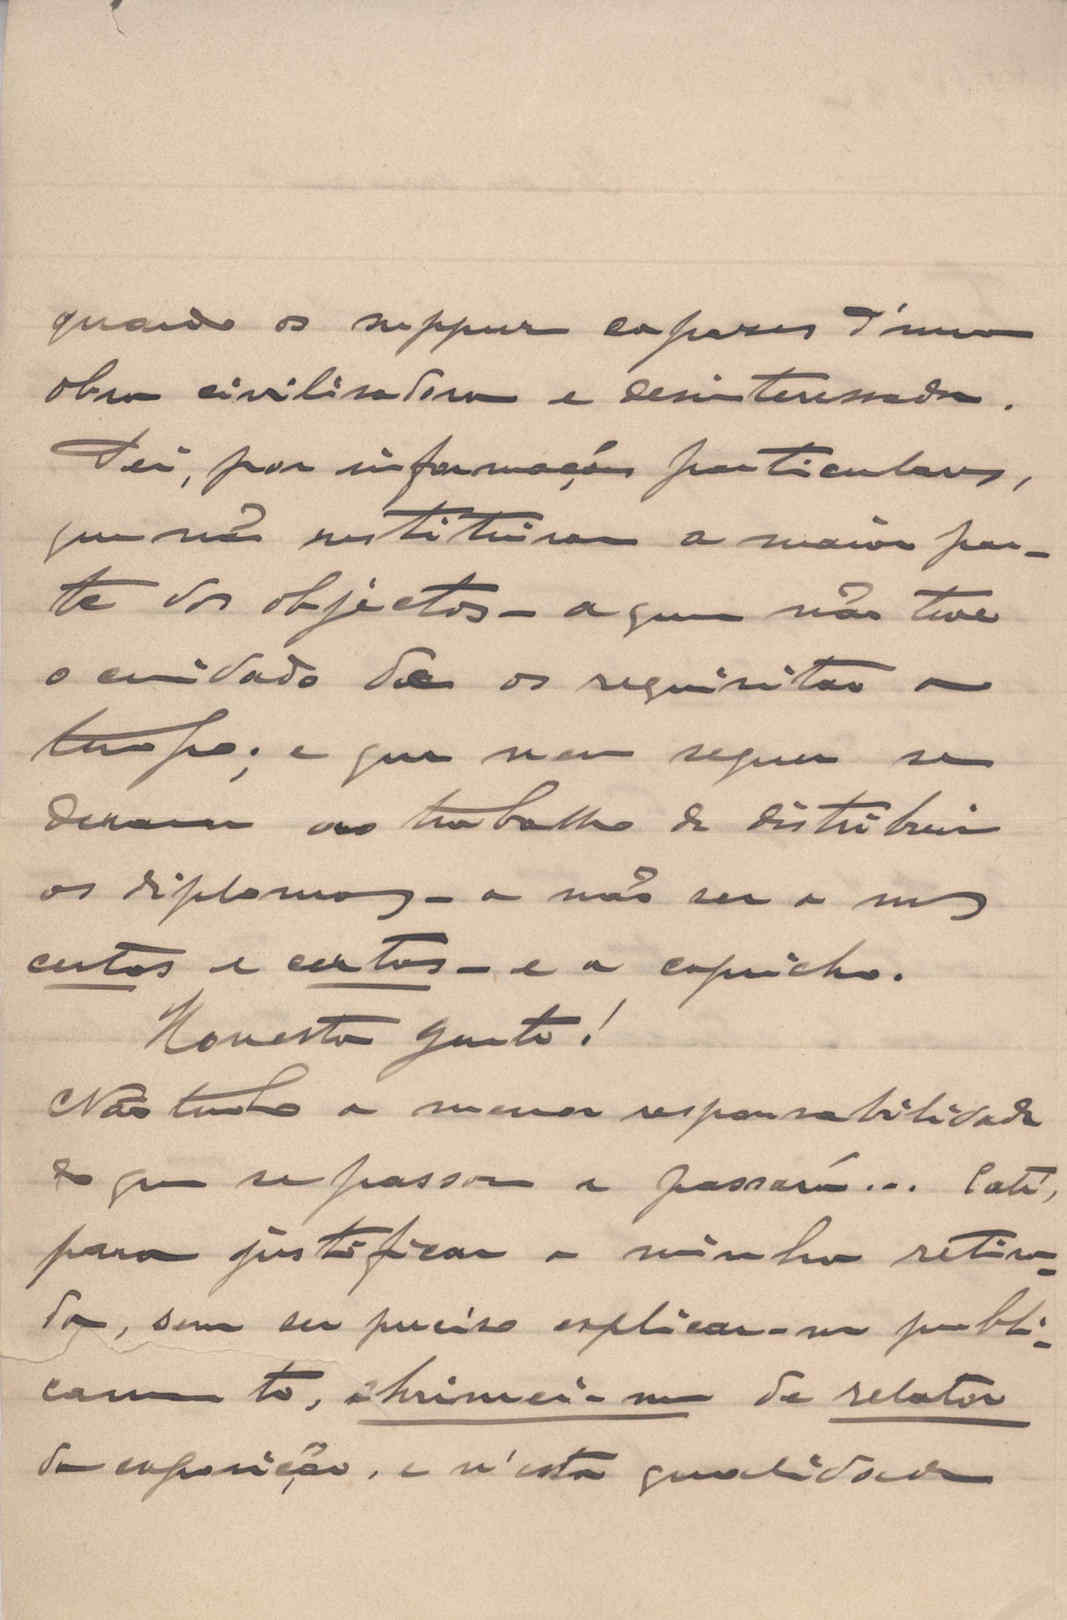 quando os suppuz capazes d'uma
obra civilisadora e desinteressada.
Sei, por informações particulares,
que não restituiram a maior par-
te dos objectos - a quem não teve
o cuidado de os requisitar a
tempo; e que nem sequer se
deram ao trabalho de distribuir
os diplomas - a não ser a uns
certos e certos - e a capricho.
Honesta gente!
Não tenho a menor responsabilidade
do que se passou e passará... E até,
para justificar a minha retira-
da, sem ser preciso explicar-me publi-
camente, chrismei-me de relator
da exposição, e n'esta qualidade